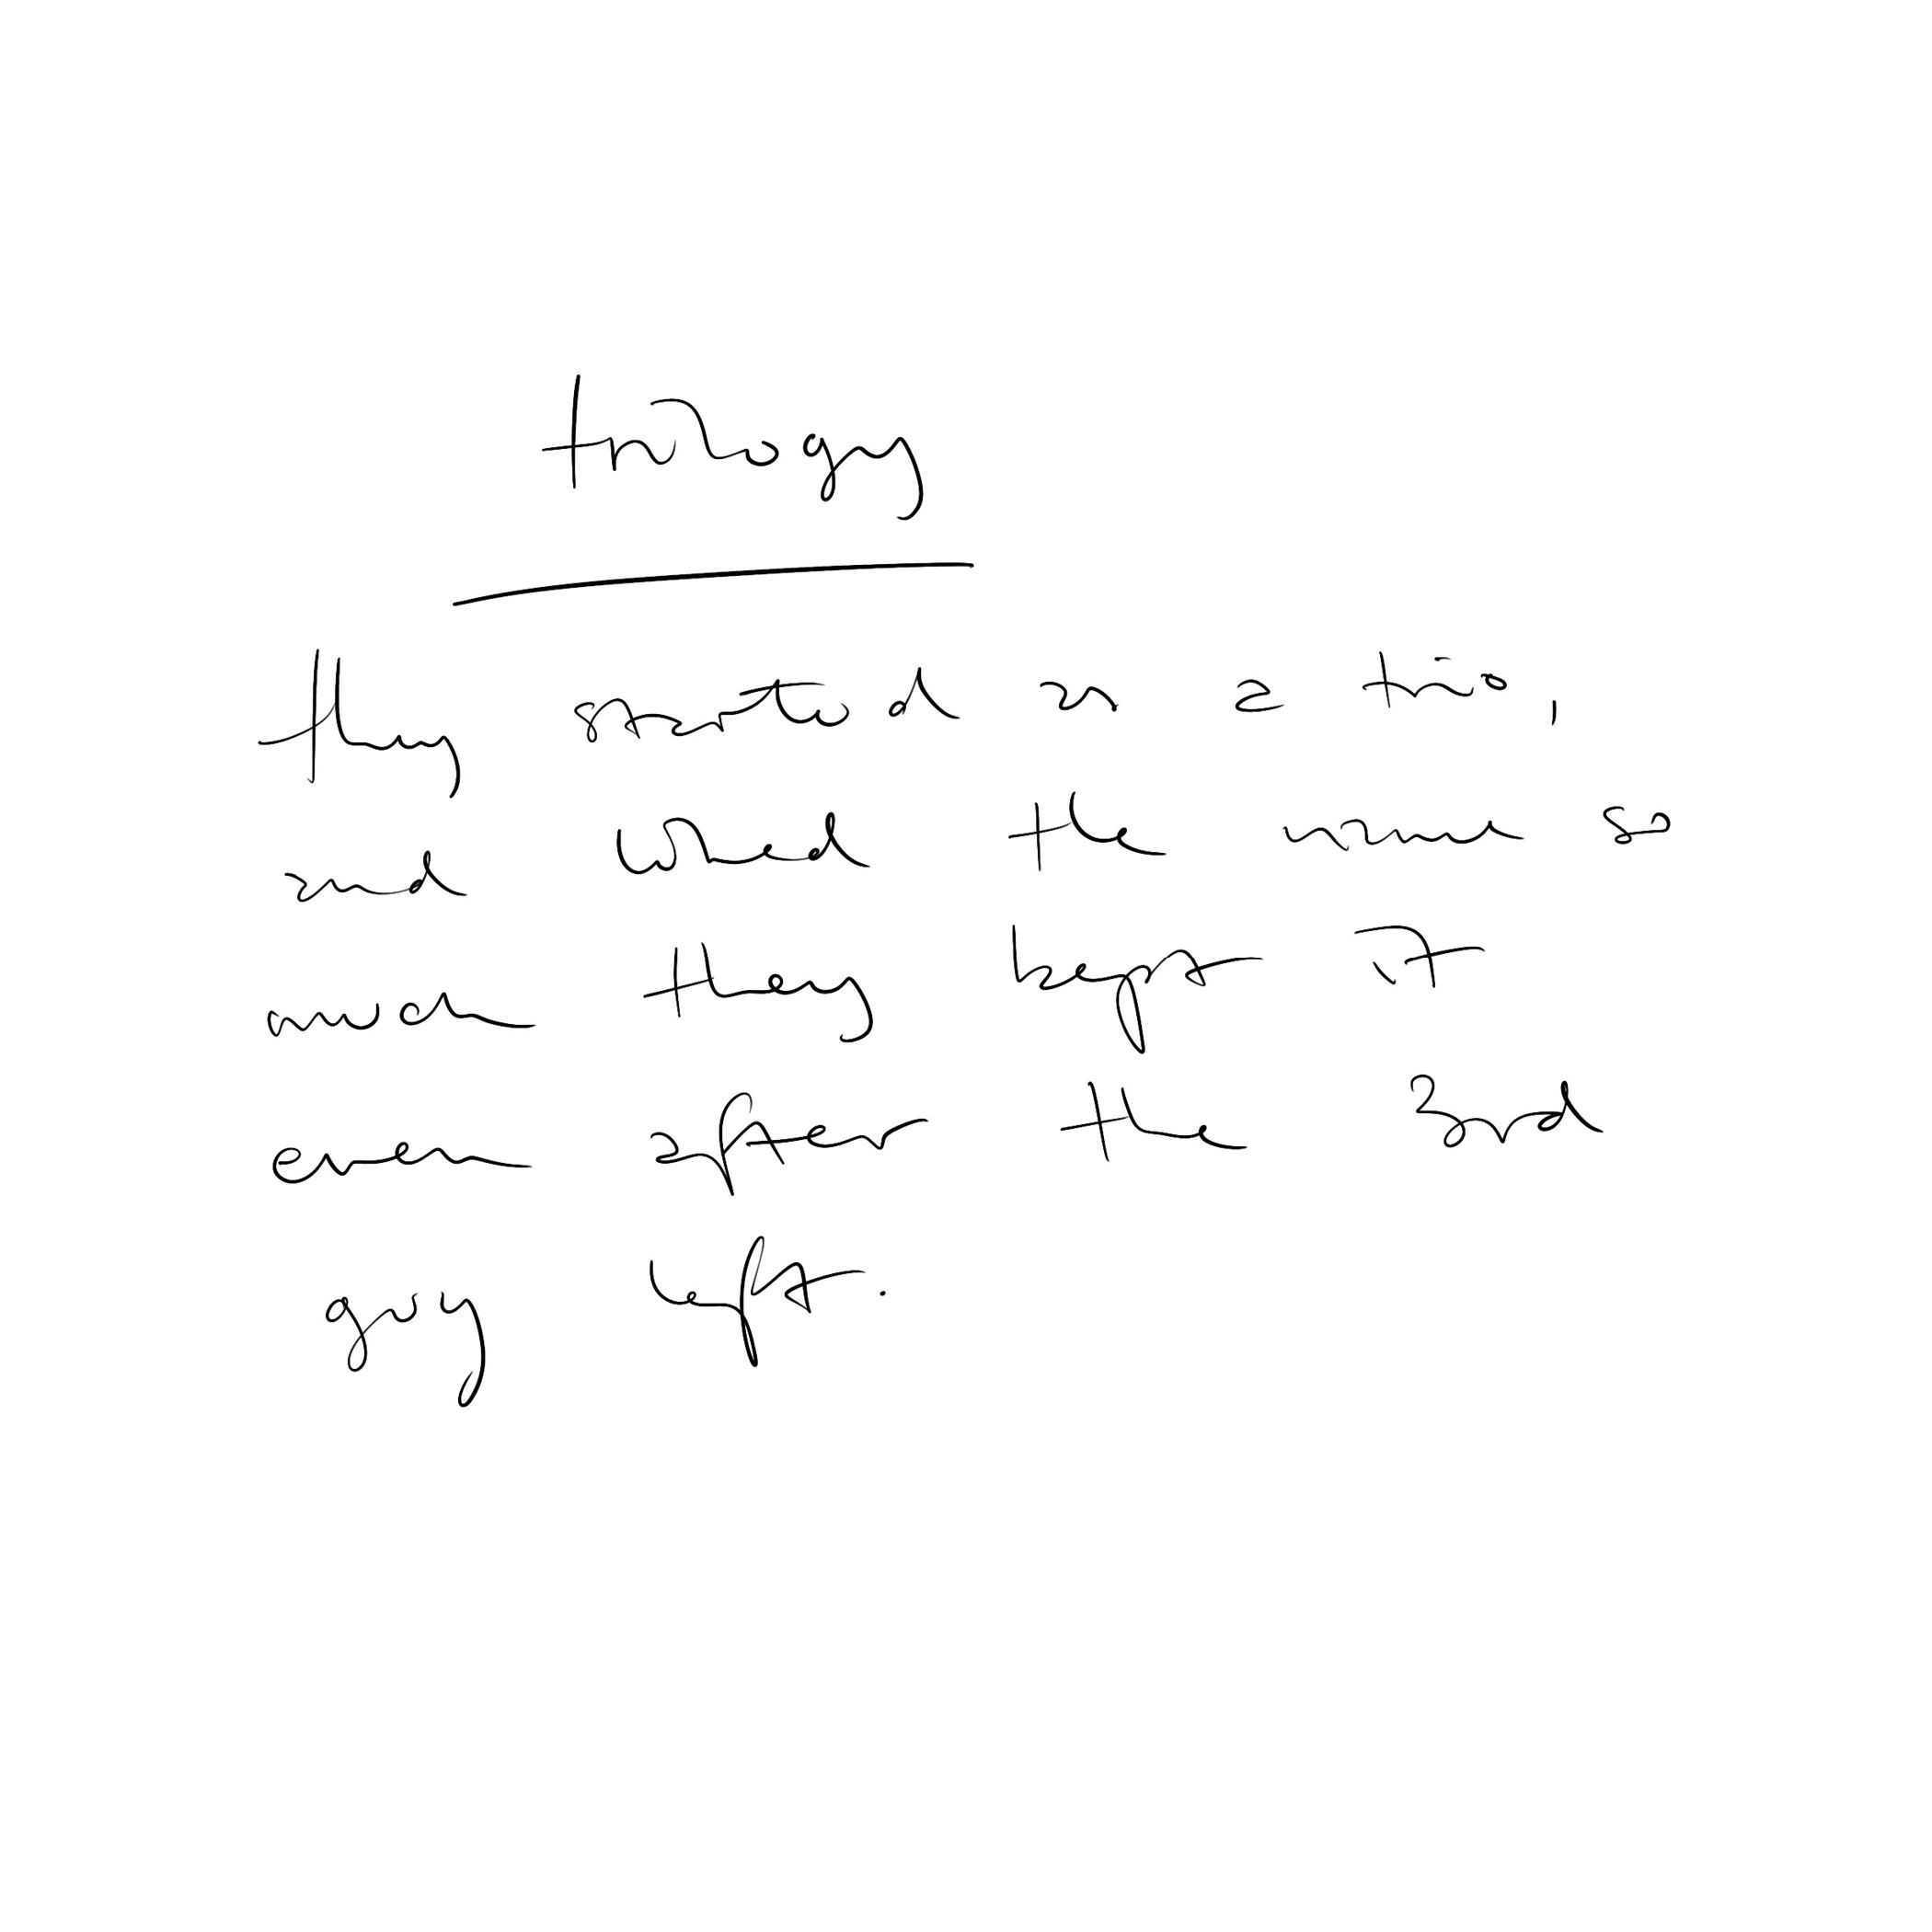 trilogy
they started as a trio,
and liked the name so
much they kept it
even after the 3rd
guy left.